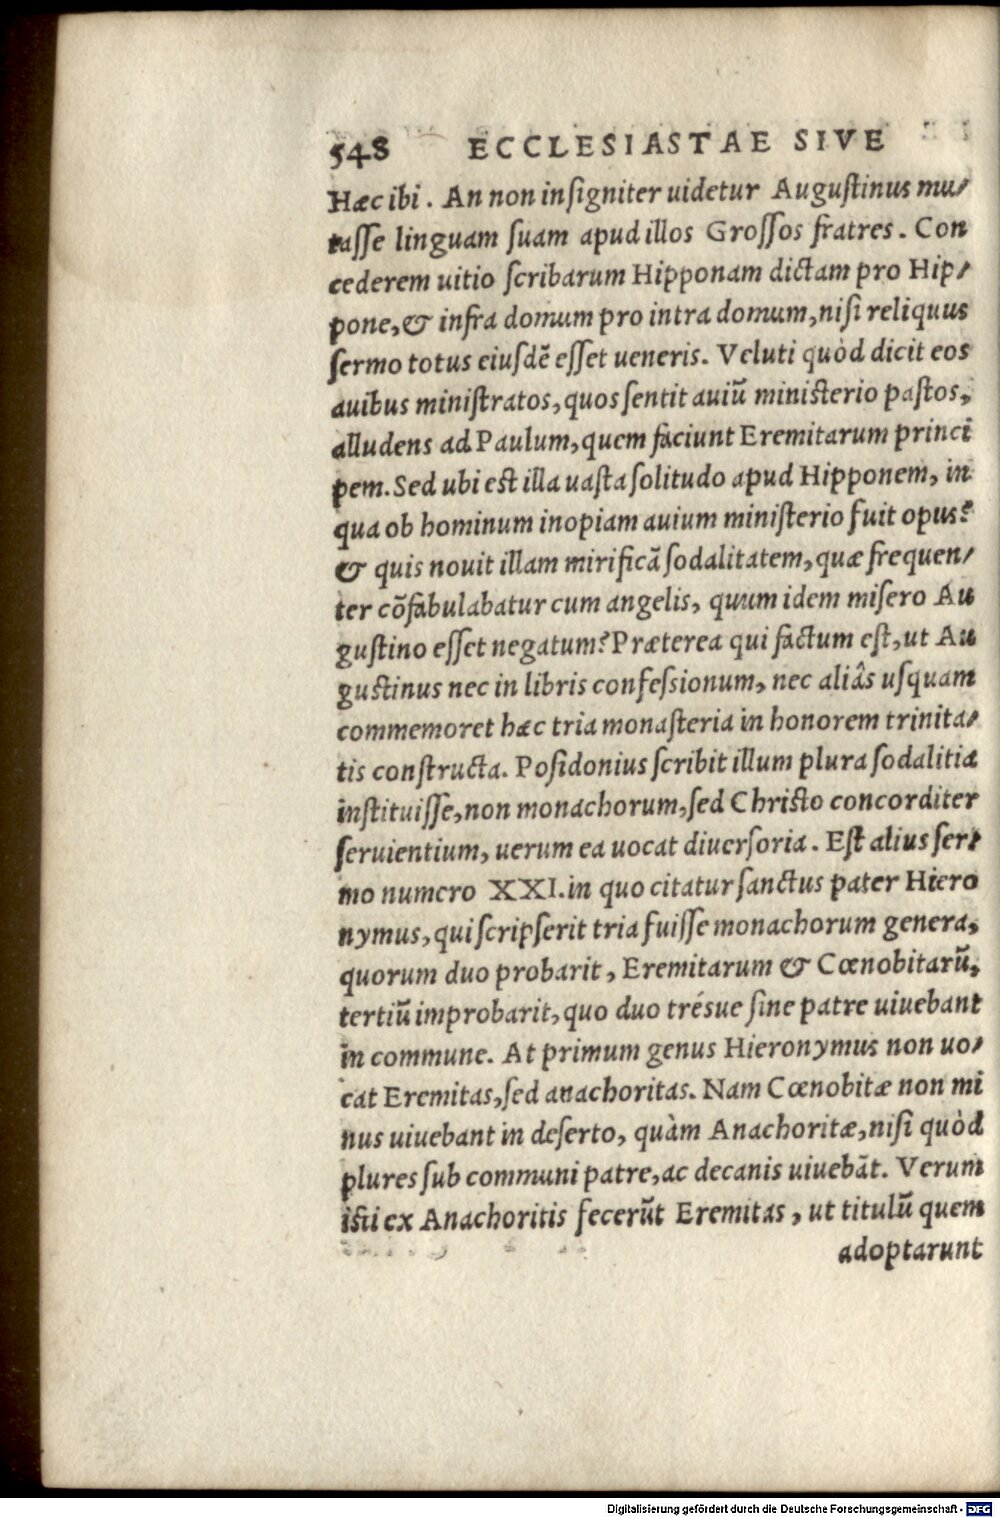 548 ECCLESIASTAE SIVE
Hæc ibi. An non inſigniter uidetur Auguſtinus mu/
taſſe linguam ſuam apud illos Groſſos fratres. Con
cederem uitio ſcribarum Hipponam dictam pro Hip/
pone, & infra domum pro intra domum, niſi reliquus
ſermo totus eiuſdē eſſet ueneris. Veluti quòd dicit eos
auibus miniſtratos, quos ſentit auiū miniſterio paſtos,
alludens ad Paulum, quem faciunt Eremitarum princi
pem. Sed ubi eſt illa uaſta ſolitudo apud Hipponem, in
qua ob hominum inopiam auium miniſterio fuit opus?
& quis nouit illam mirificā ſodalitatem, quæ frequen/
ter cōfabulabatur cum angelis, quum idem miſero Au
guſtino eſſet negatum? Præterea qui factum eſt, ut Au
guſtinus nec in libris confeſsionum, nec aliâs uſquam
commemoret hæc tria monaſteria in honorem trinita/
tis conſtructa. Poſidonius ſcribit illum plura ſodalitia
inſtituiſſe, non monachorum, ſed Chriſto concorditer
ſeruientium, uerum ea uocat diuerſoria. Eſt alius ſer/
mo numero XXI. in quo citatur ſanctus pater Hiero
nymus, qui ſcripſerit tria fuiſſe monachorum genera,
quorum duo probarit, Eremitarum & Cœnobitarū,
tertiū improbarit, quo duo trésue ſine patre uiuebant
in commune. At primum genus Hieronymus non uo/
cat Eremitas, ſed anachoritas. Nam Cœnobitæ non mi
nus uiuebant in deſerto, quàm Anachoritæ, niſi quòd
plures ſub communi patre, ac decanis uiuebāt. Verum
iſti ex Anachoritis fecerūt Eremitas, ut titulū quem
adoptarunt
Digitalisierung gefördert durch die Deutsche Forschungsgemeinschaft - DFG